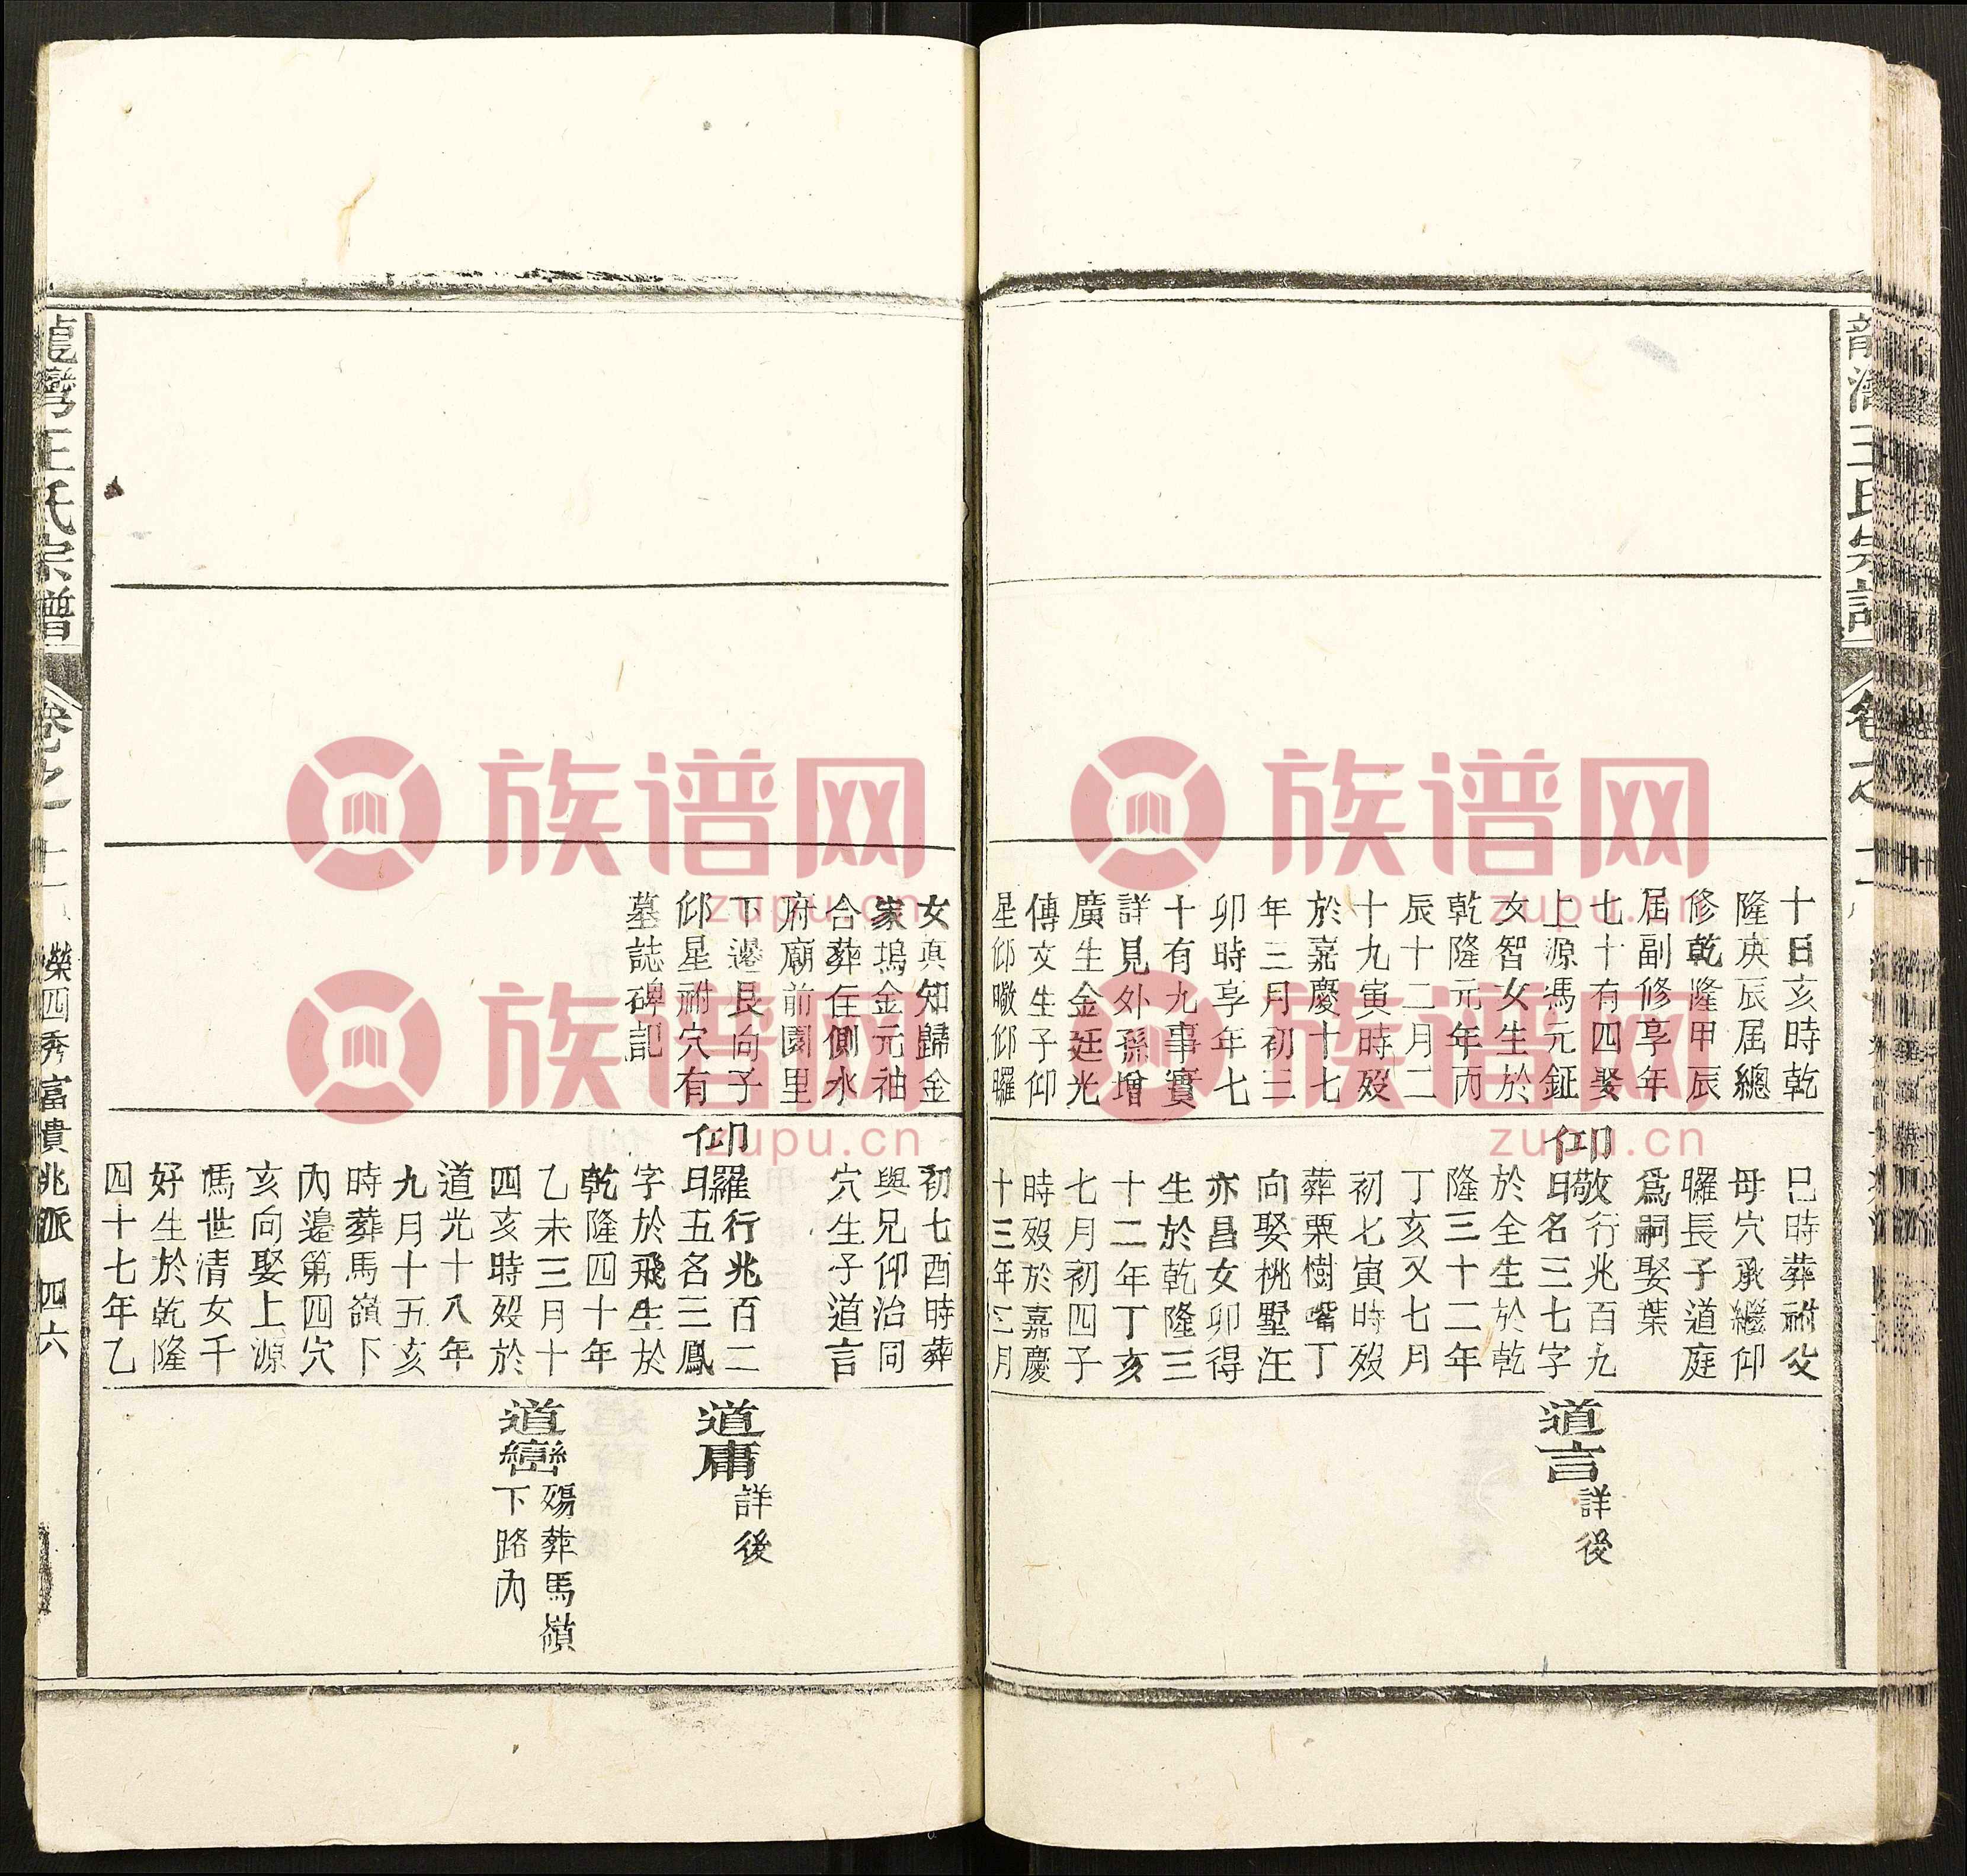 十日亥時乾
隆庚辰届總
修乾隆甲辰
届副修享年
七十有四娶
上源馮元鉦
女智女生於
乾隆元年丙
辰十二月二
十九寅時殁
於嘉慶十七
年三月初三
卯時享年七
十有九事實
詳見外孫增
廣生金廷光
傳文生子仰
星仰暾仰曜
巳時葬祔父
母穴承繼仰
曜長子道庭
爲嗣娶葉
仰敬行兆百九
日名三七字
於全生於乾
隆三十二年
丁亥又七月
初七寅時殁
葬栗樹嘴丁
向娶桃墅汪
亦昌女卯得
生於乾隆三
十二年丁亥
七月初四子
時殁於嘉慶
十三年三月
道言
詳後
女真知歸金
家塢金元袖
合葬住側水
府廟前園里
下邊艮向子
仰星祔穴有
墓誌碑記
初七酉時葬
與兄仰治同
穴生子道言
仰羅行兆百二
日五名三鳳
字於飛生於
乾隆四十年
乙未三月十
四亥時殁於
道光十八年
九月十五亥
時葬馬嶺下
内邊第四穴
亥向娶上源
馮世清女千
好生於乾隆
四十七年乙
道庸
詳後
道巒
殤葬馬嶺
下路内
龍灣王氏宗譜
卷之十一
榮四秀富貴兆派
四六
族谱网
zupu.cn
族谱网
zupu.cn
族谱网
zupu.cn
族谱网
zupu.cn